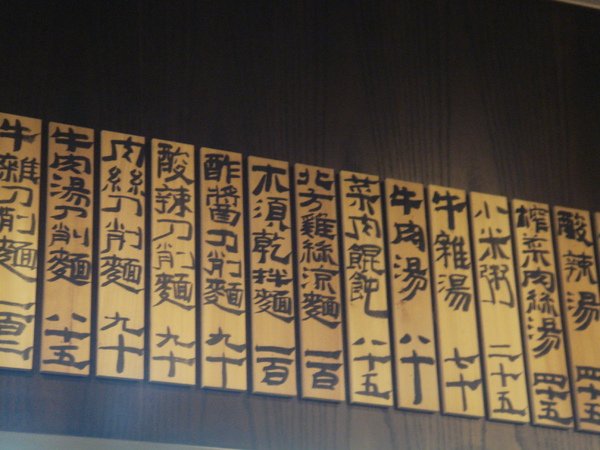 牛雜刀削麵 一百二
牛肉湯刀削麵 八十五
肉絲刀削麵 九十
酸辣刀削麵 九十
酢醬刀削麵 九十
木須乾拌麵 一百
北方雞絲涼麵 一百
菜肉餛飩 八十五
牛肉湯 八十
牛雜湯 七十
小米粥 二十五
榨菜肉絲湯 四十五
酸辣湯 四十五